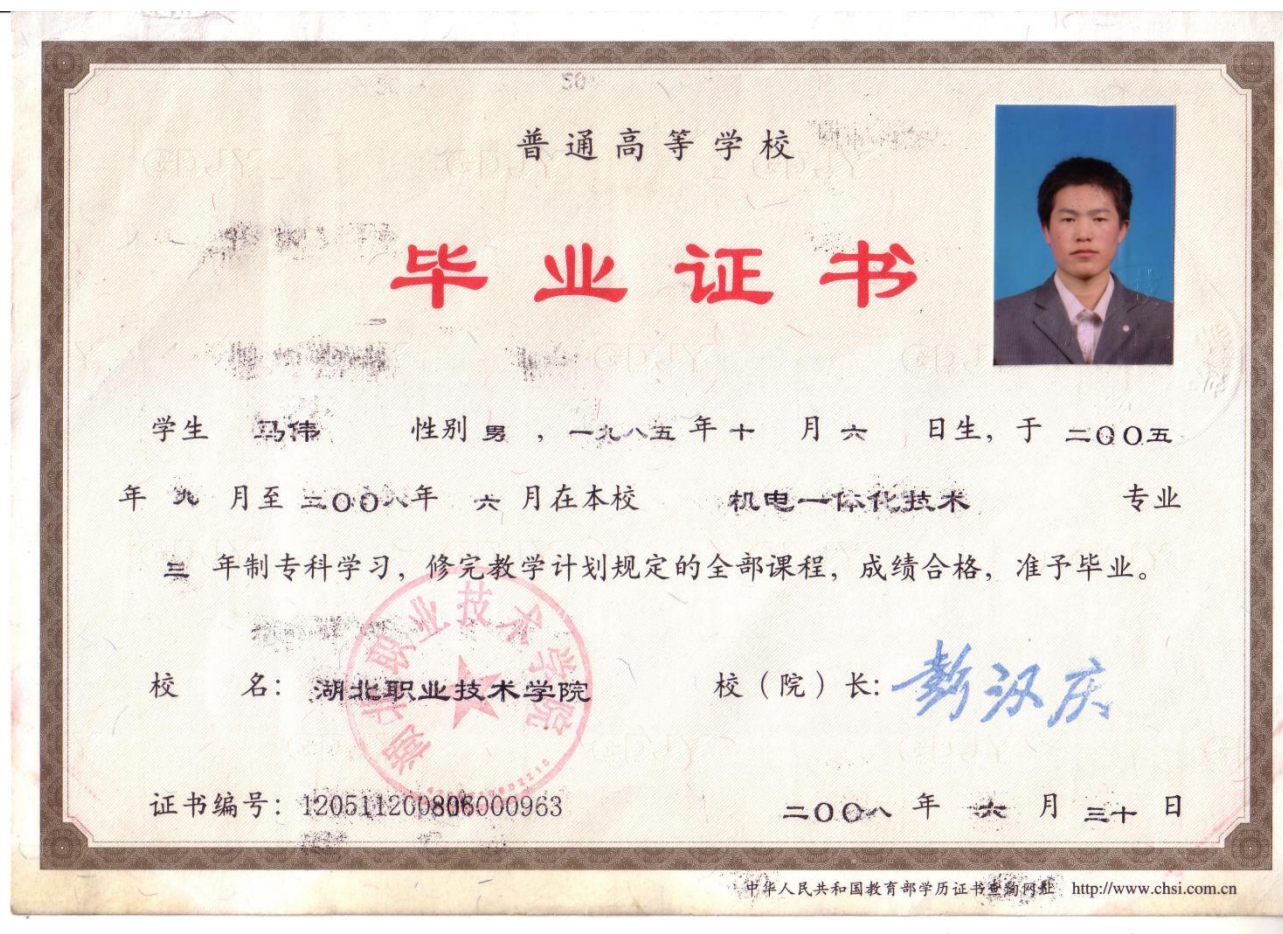 普通高等学校
毕业证书
学生 马伟 性别 男 ，一九八五 年 十 月 六 日生，于 二〇〇五
年 九 月至 二〇〇八年 六 月在本校 机电一体化技术 专业
三 年制专科学习，修完教学计划规定的全部课程，成绩合格，准予毕业。
校 名：湖北职业技术学院 校（院）长：彭汉庆
湖北职业技术学院
证书编号：120511200806000963 二〇〇八 年 六 月 三十 日
中华人民共和国教育部学历证书查询网址 http://www.chsi.com.cn